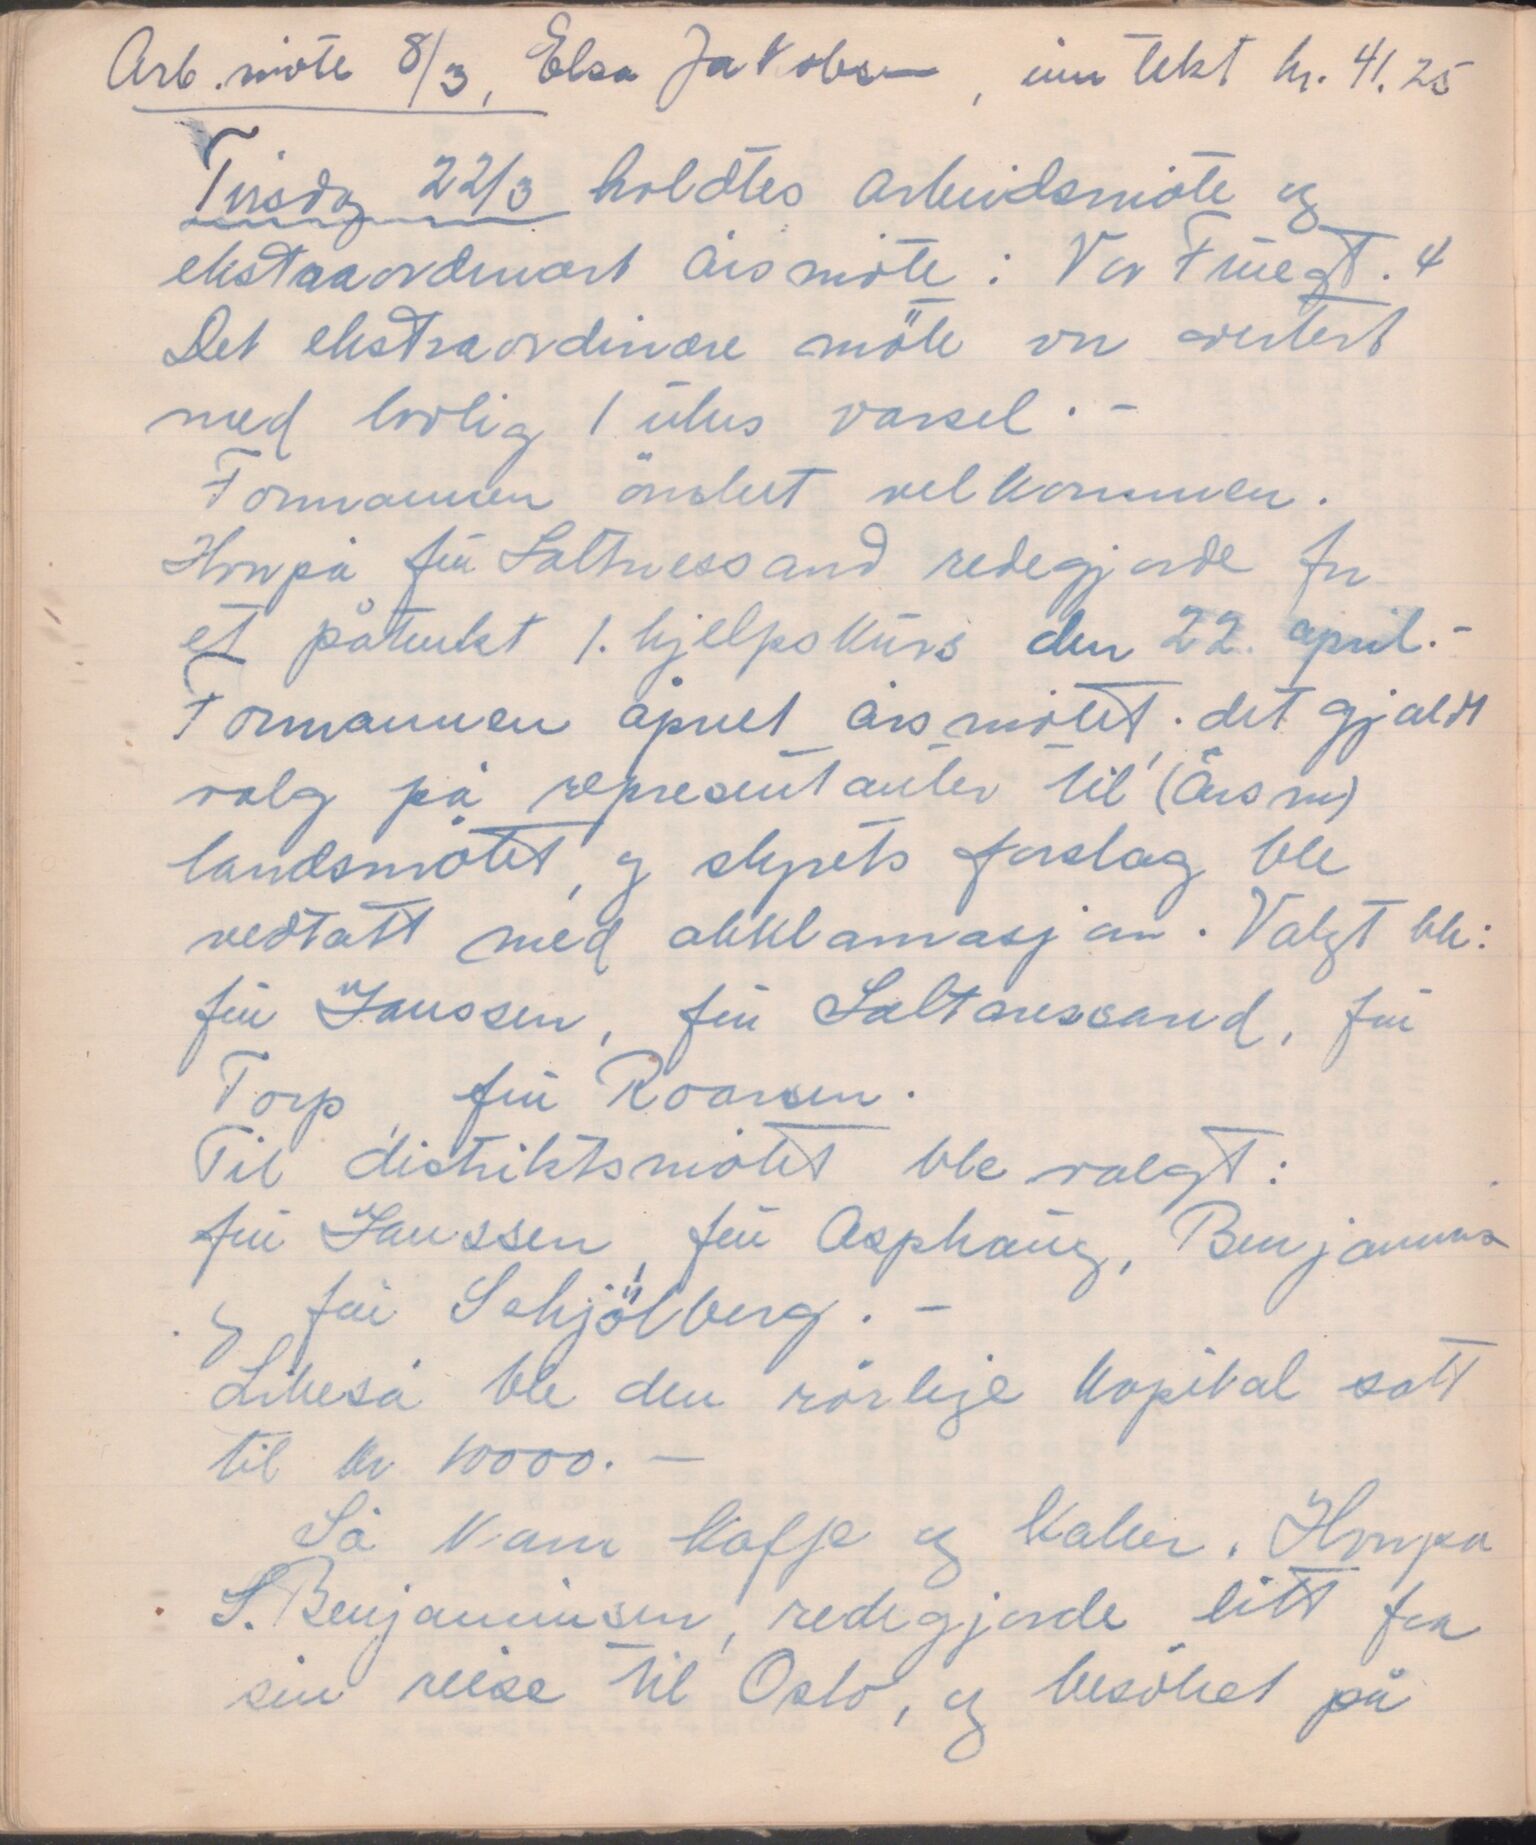 Arb. möte 8/3, Elsa Jakobsen, inntekt kr. 41.25
Tirsdag 22/3 holdtes arbeidsmöte og
ekstraordinært årsmöte: Vor Fruegt. 4
Det ekstraordinære möte var avertert
med lovlig 1 ukes varsel. -
Formannen önsket velkommen.
Hvorpå frü Saltnessand redegjorde for
et påtenkt 1. hjelpskürs den 22. april. -
Formannen åpnet årsmötet, det gjaldt
valg på representanter til (Årsm)
landsmötet, og styrets forslag ble
vedtatt med akklamasjon. Valgt ble:
frü Janssen, frü Saltnessand, frü
Torp, frü Roarsen.
Til distriktsmötet ble valgt:
frü Janssen, frü Asphaug, Benjamins
og frü Schjölberg. -
Likeså ble den rörlige kapital satt
til kr 10000. -
Så kam kaffe og kaker. Hvorpå
S. Benjaminsen, redegjorde litt fra
sin reise til Oslo, og besöket på